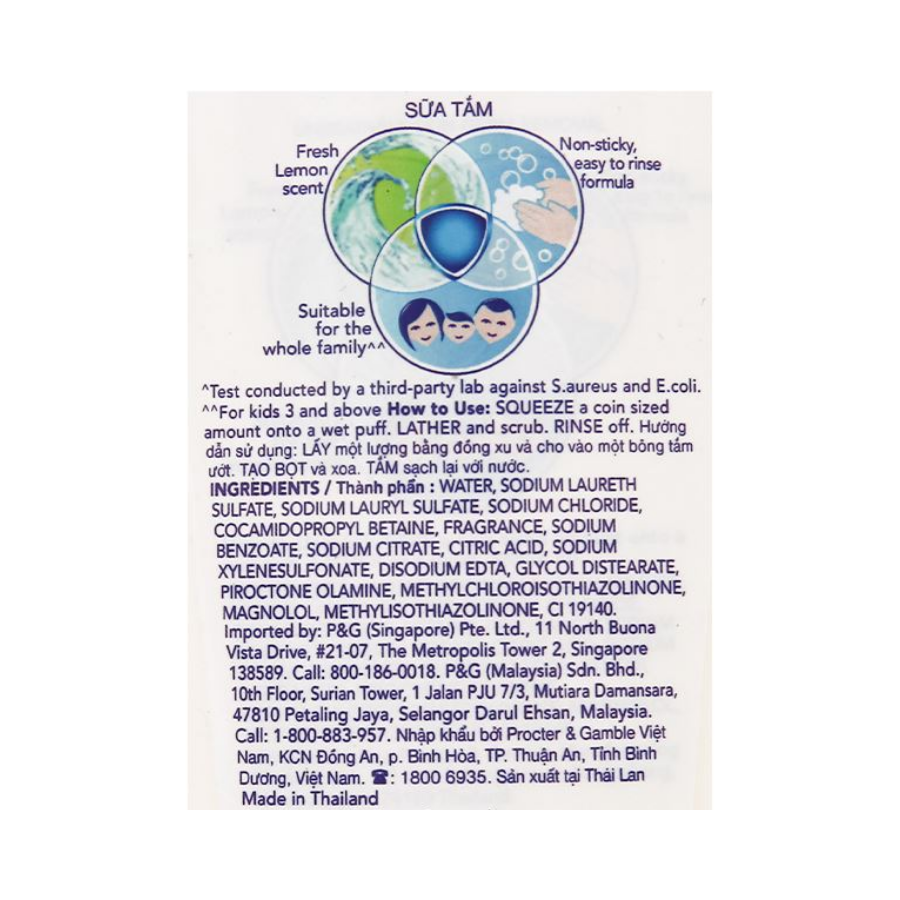 SỮA TẮM
Fresh
Lemon
scent
Non-sticky,
easy to rinse
formula
Suitable
for the
whole family^^
^Test conducted by a third-party lab against S.aureus and E.coli.
^^For kids 3 and above How to Use: SQUEEZE a coin sized
amount onto a wet puff. LATHER and scrub. RINSE off. Hướng
dẫn sử dụng: LẤY một lượng bằng đồng xu và cho vào một bông tắm
ướt. TẠO BỌT và xoa. TẮM sạch lại với nước.
INGREDIENTS / Thành phần : WATER, SODIUM LAURETH
SULFATE, SODIUM LAURYL SULFATE, SODIUM CHLORIDE,
COCAMIDOPROPYL BETAINE, FRAGRANCE, SODIUM
BENZOATE, SODIUM CITRATE, CITRIC ACID, SODIUM
XYLENESULFONATE, DISODIUM EDTA, GLYCOL DISTEARATE,
PIROCTONE OLAMINE, METHYLCHLOROISOTHIAZOLINONE,
MAGNOLOL, METHYLISOTHIAZOLINONE, CI 19140.
Imported by: P&G (Singapore) Pte. Ltd., 11 North Buona
Vista Drive, #21-07, The Metropolis Tower 2, Singapore
138589. Call: 800-186-0018. P&G (Malaysia) Sdn. Bhd.,
10th Floor, Surian Tower, 1 Jalan PJU 7/3, Mutiara Damansara,
47810 Petaling Jaya, Selangor Darul Ehsan, Malaysia.
Call: 1-800-883-957. Nhập khẩu bởi Procter & Gamble Việt
Nam, KCN Đồng An, p. Bình Hòa, TP. Thuận An, Tỉnh Bình
Dương, Việt Nam. ☎: 1800 6935. Sản xuất tại Thái Lan
Made in Thailand